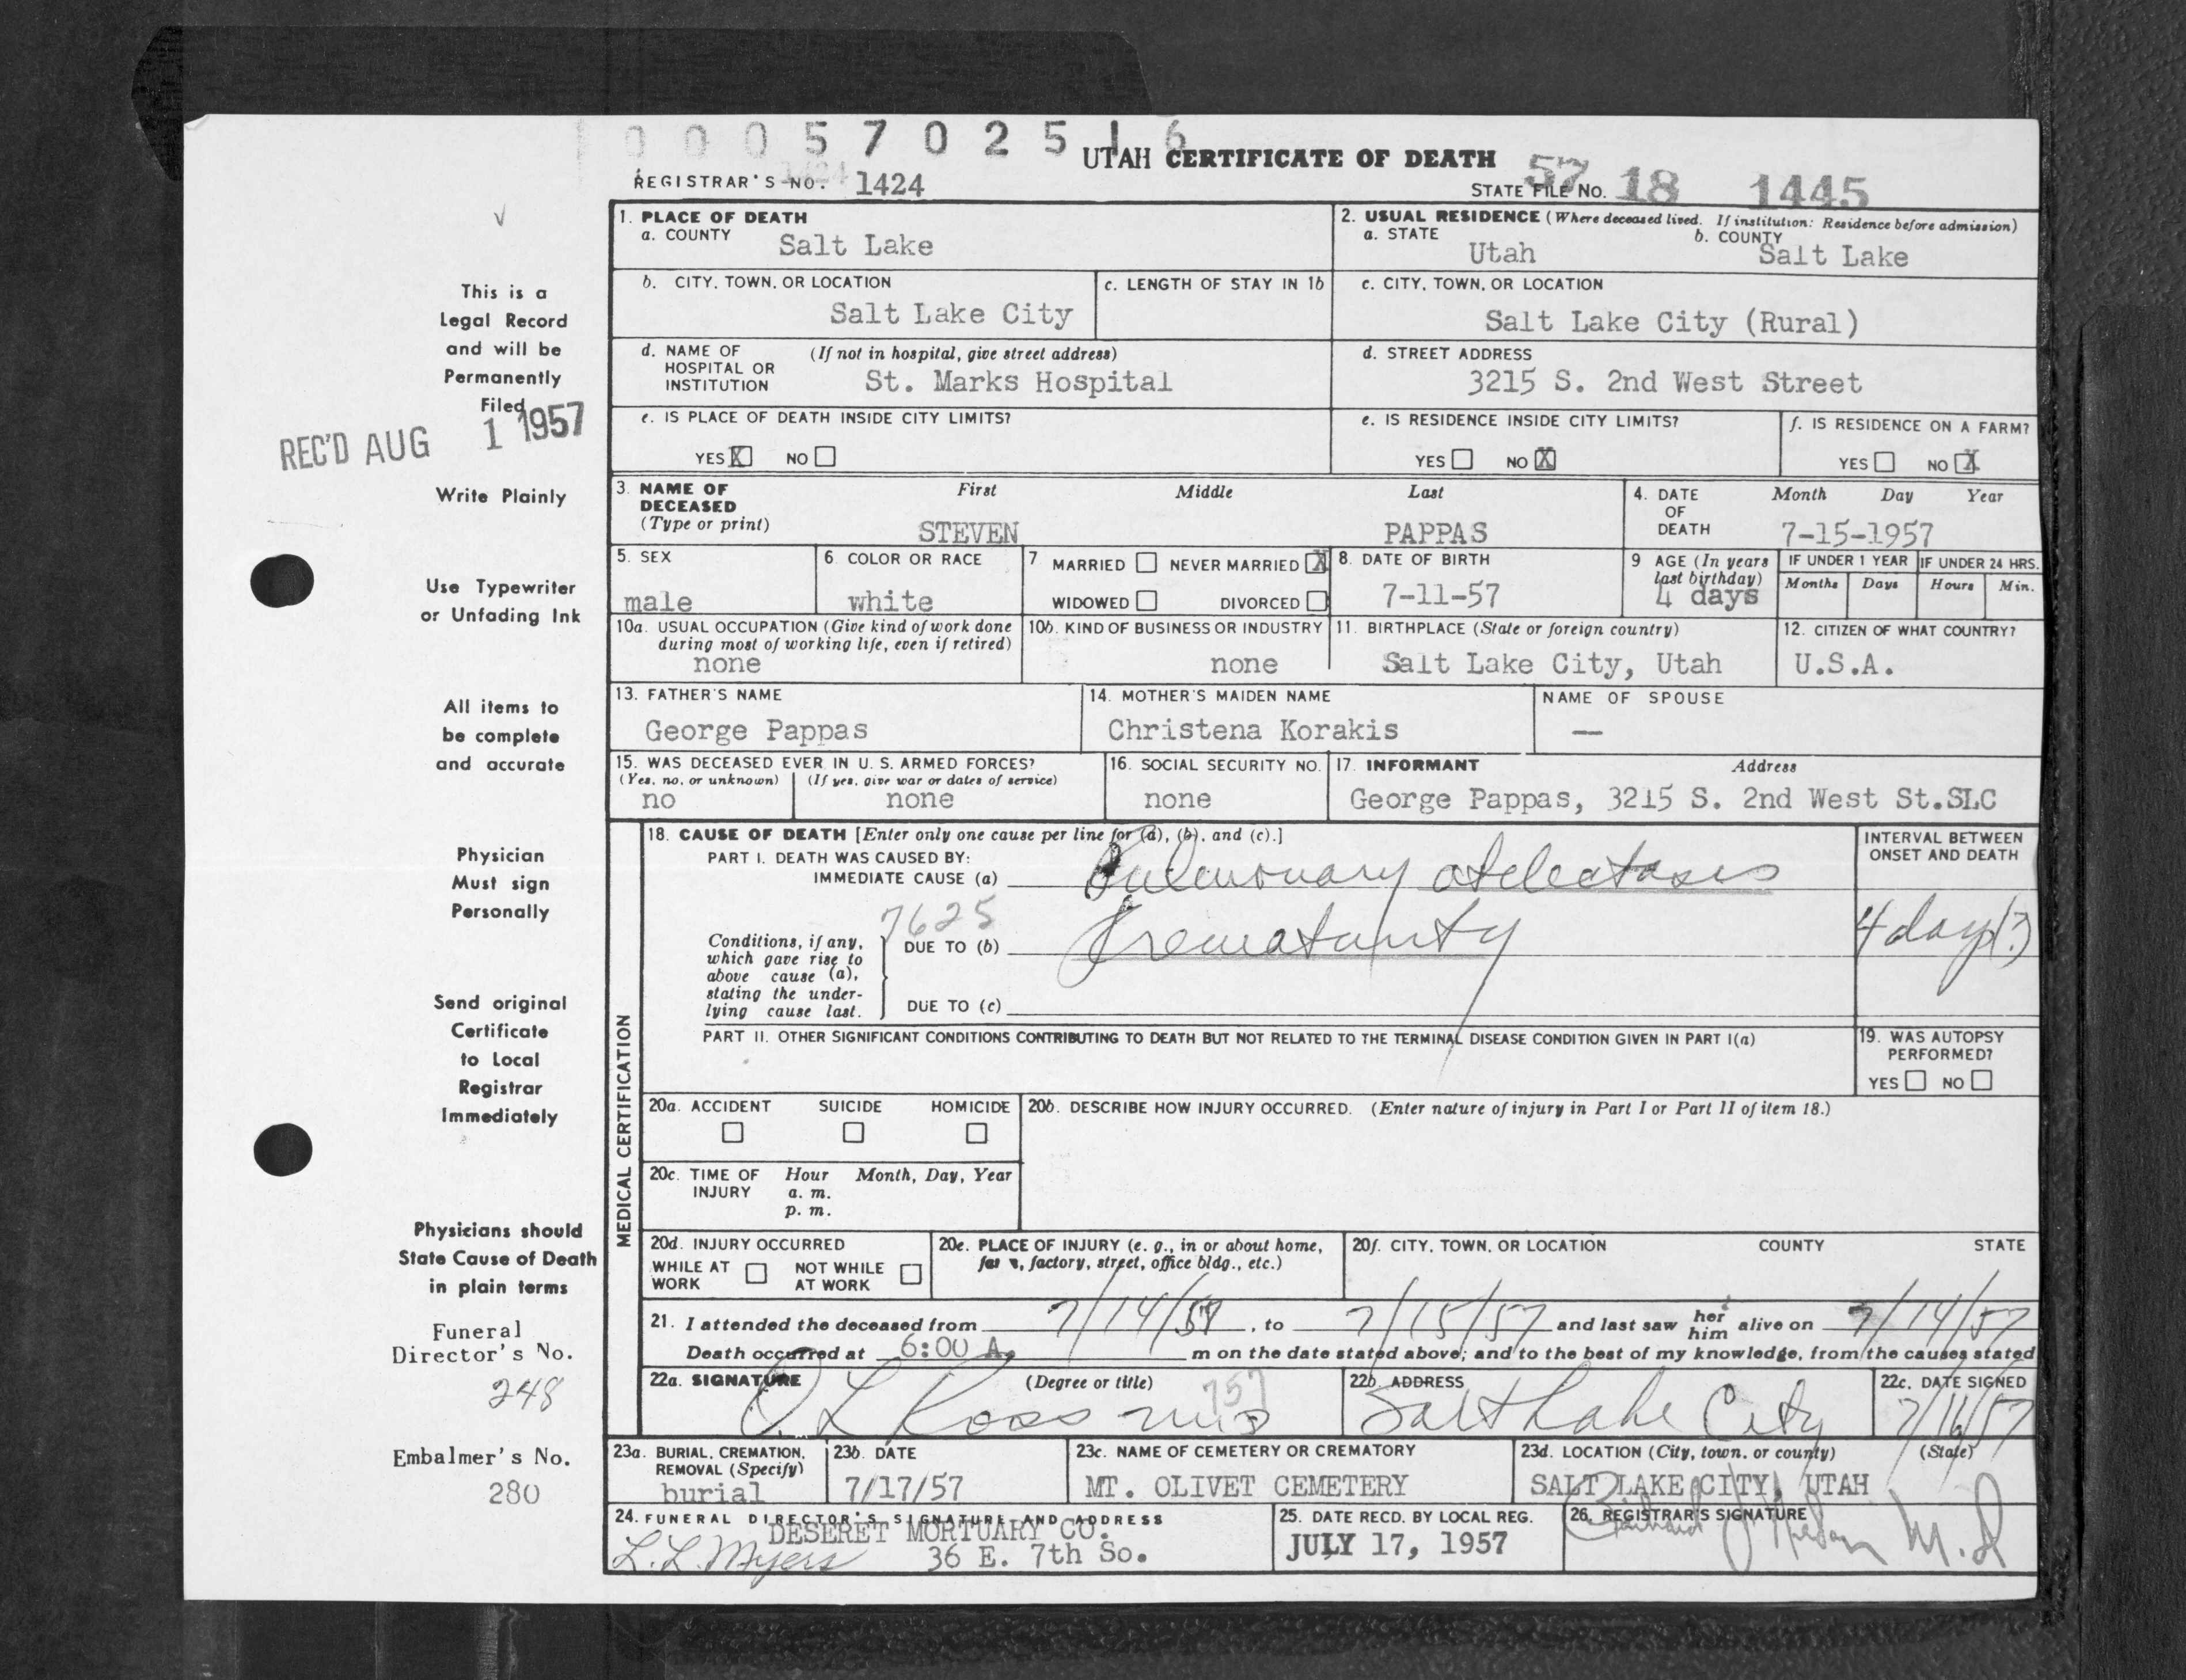 0005702516
UTAH CERTIFICATE OF DEATH
REGISTRAR'S NO. 1424
STATE FILE No. 57 18 1445
1. PLACE OF DEATH
a. COUNTY Salt Lake
2. USUAL RESIDENCE (Where deceased lived. If institution: Residence before admission)
a. STATE Utah b. COUNTY Salt Lake
b. CITY, TOWN, OR LOCATION Salt Lake City
c. LENGTH OF STAY IN 1b
c. CITY, TOWN, OR LOCATION
Salt Lake City (Rural)
d. NAME OF HOSPITAL OR INSTITUTION (If not in hospital, give street address)
St. Marks Hospital
d. STREET ADDRESS
3215 S. 2nd West Street
e. IS PLACE OF DEATH INSIDE CITY LIMITS?
YES X NO
e. IS RESIDENCE INSIDE CITY LIMITS?
YES NO X
f. IS RESIDENCE ON A FARM?
YES NO X
3. NAME OF DECEASED (Type or print) First Middle Last
STEVEN PAPPAS
4. DATE OF DEATH Month Day Year
7-15-1957
5. SEX
male
6. COLOR OR RACE
white
7 MARRIED NEVER MARRIED X
WIDOWED DIVORCED
8. DATE OF BIRTH
7-11-57
9 AGE (In years last birthday)
4 days
IF UNDER 1 YEAR IF UNDER 24 HRS.
Months Days Hours Min.
10a. USUAL OCCUPATION (Give kind of work done during most of working life, even if retired)
none
10b. KIND OF BUSINESS OR INDUSTRY
none
11. BIRTHPLACE (State or foreign country)
Salt Lake City, Utah
12. CITIZEN OF WHAT COUNTRY?
U.S.A.
13. FATHER'S NAME
George Pappas
14. MOTHER'S MAIDEN NAME
Christena Korakis
NAME OF SPOUSE
—
15. WAS DECEASED EVER IN U. S. ARMED FORCES?
(Yes, no, or unknown) (If yes, give war or dates of service)
no none
16. SOCIAL SECURITY NO.
none
17. INFORMANT Address
George Pappas, 3215 S. 2nd West St.SLC
MEDICAL CERTIFICATION
18. CAUSE OF DEATH [Enter only one cause per line for (a), (b), and (c).]
PART I. DEATH WAS CAUSED BY:
IMMEDIATE CAUSE (a) Pulmonary atelectasis
7625
Conditions, if any, which gave rise to above cause (a), stating the underlying cause last.
DUE TO (b) Prematurity
DUE TO (c)
INTERVAL BETWEEN ONSET AND DEATH
4 days(?)
PART II. OTHER SIGNIFICANT CONDITIONS CONTRIBUTING TO DEATH BUT NOT RELATED TO THE TERMINAL DISEASE CONDITION GIVEN IN PART I(a)
19. WAS AUTOPSY PERFORMED?
YES NO
20a. ACCIDENT SUICIDE HOMICIDE
20b. DESCRIBE HOW INJURY OCCURRED. (Enter nature of injury in Part I or Part II of item 18.)
20c. TIME OF INJURY Hour Month, Day, Year
a. m.
p. m.
20d. INJURY OCCURRED
WHILE AT WORK NOT WHILE AT WORK
20e. PLACE OF INJURY (e. g., in or about home, farm, factory, street, office bldg., etc.)
20f. CITY, TOWN, OR LOCATION COUNTY STATE
21. I attended the deceased from 7/14/57, to 7/15/57 and last saw her him alive on 7/14/57
Death occurred at 6:00 A. m on the date stated above; and to the best of my knowledge, from the causes stated
22a. SIGNATURE (Degree or title)
O. L Ross MD
757
22b. ADDRESS
Salt Lake City
22c. DATE SIGNED
7/16/57
23a. BURIAL, CREMATION, REMOVAL (Specify)
burial
23b. DATE
7/17/57
23c. NAME OF CEMETERY OR CREMATORY
MT. OLIVET CEMETERY
23d. LOCATION (City, town, or county) (State)
SALT LAKE CITY, UTAH
24. FUNERAL DIRECTOR'S SIGNATURE AND ADDRESS
DESERET MORTUARY CO.
L.L. Myers 36 E. 7th So.
25. DATE RECD. BY LOCAL REG.
JULY 17, 1957
26. REGISTRAR'S SIGNATURE
M.D
This is a
Legal Record
and will be
Permanently
Filed
REC'D AUG 1 1957
Write Plainly
Use Typewriter
or Unfading Ink
All items to
be complete
and accurate
Physician
Must sign
Personally
Send original
Certificate
to Local
Registrar
Immediately
Physicians should
State Cause of Death
in plain terms
Funeral
Director's No.
248
Embalmer's No.
280